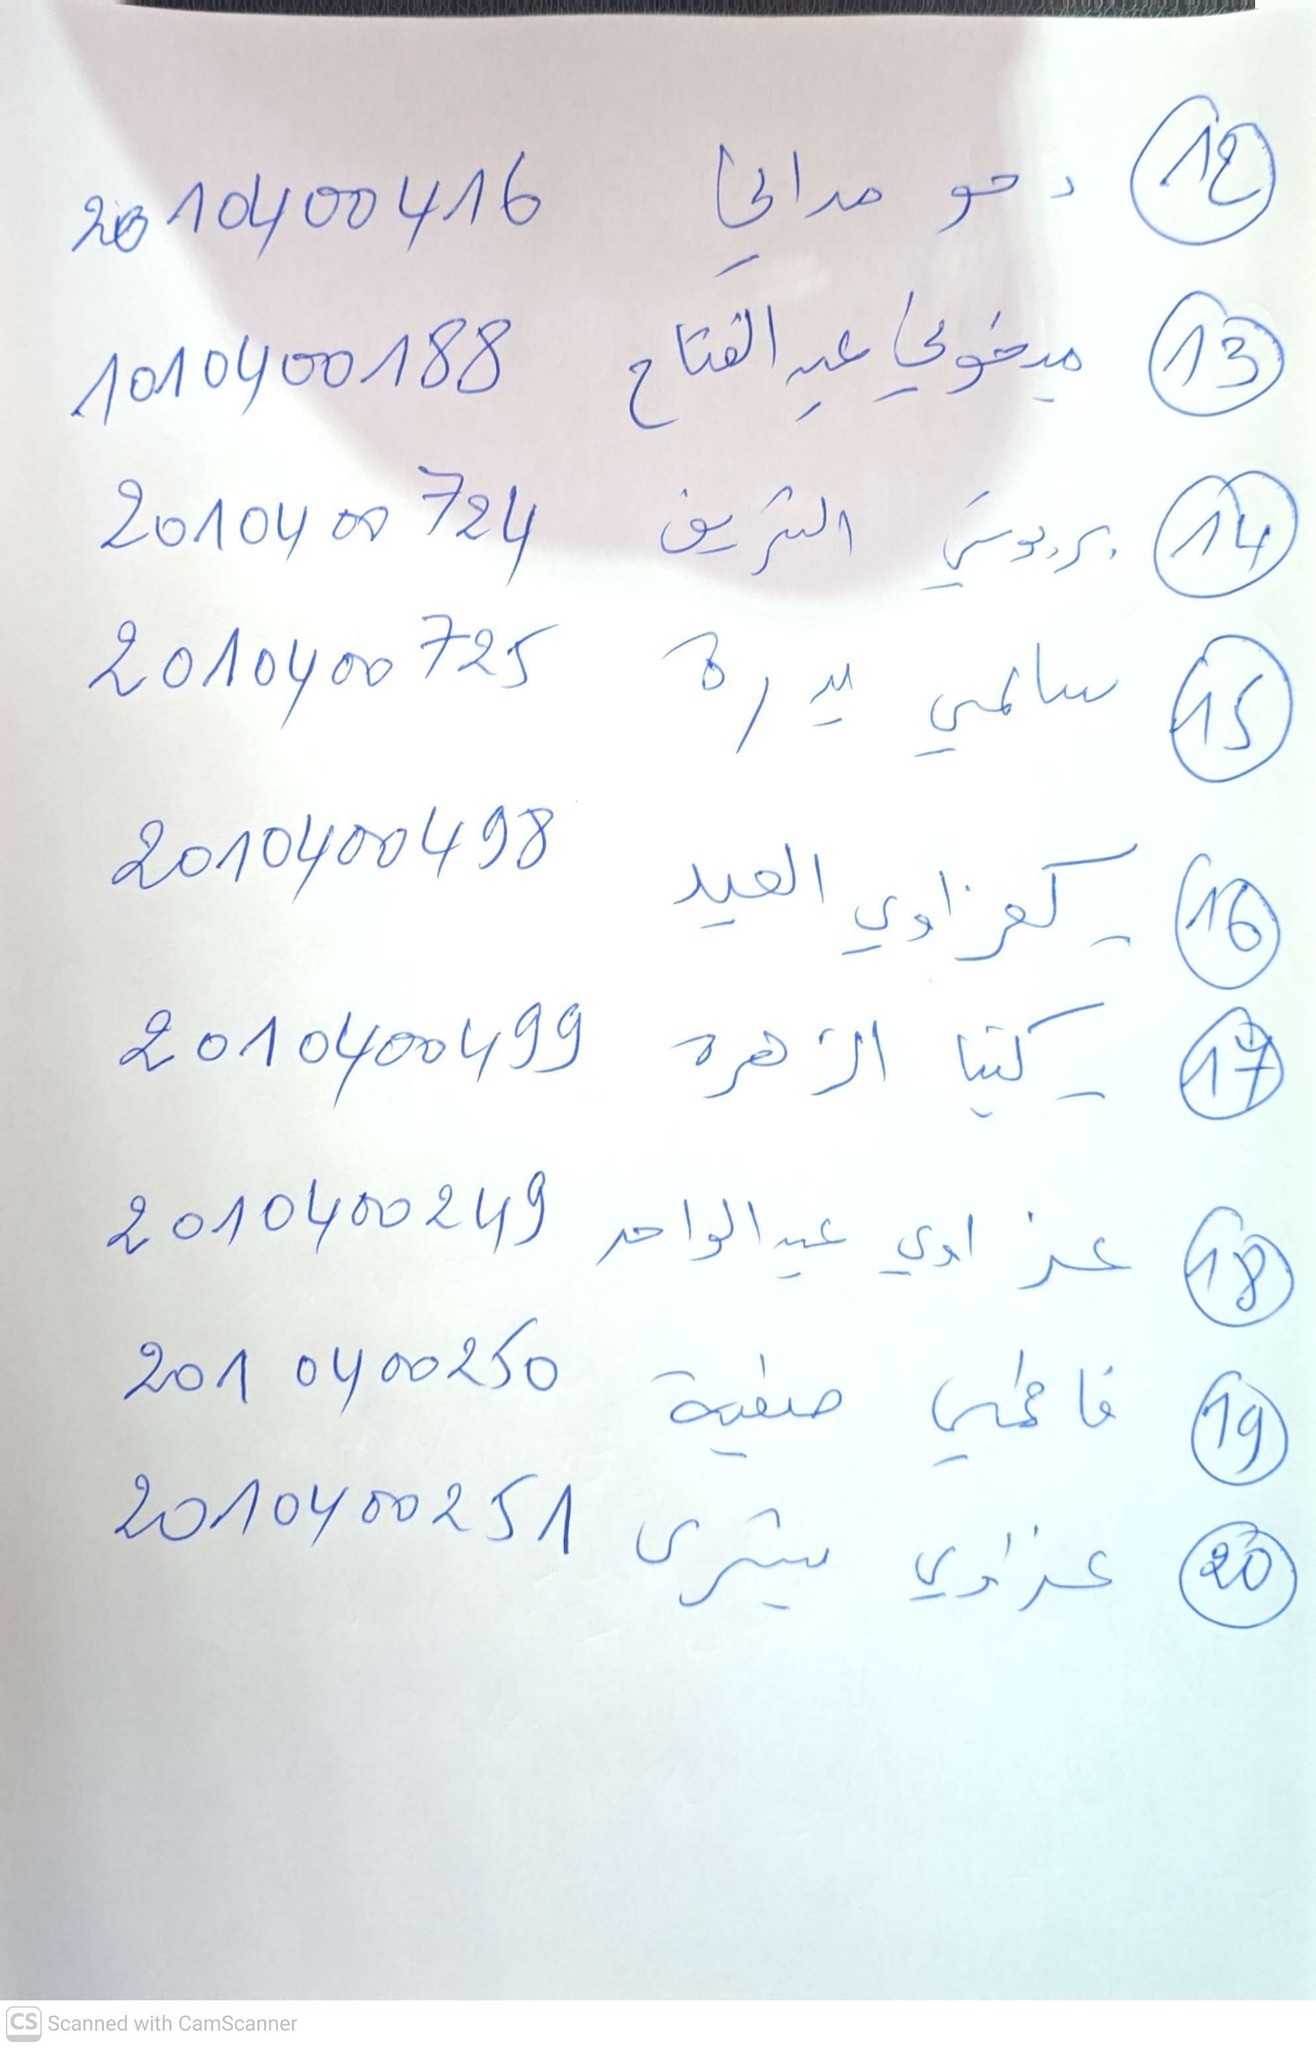 12 دحو مداني 2010400416
13 ميخوني عبد الفتاح 1010400188
14 بربوشي الشريف 2010400724
15 سالمي يدرة 2010400725
16 كعزاوي العيد 2010400498
17 كتيتا الزهرة 2010400499
18 عزاوي عبد الواحد 2010400249
19 فاطمي صفية 2010400250
20 عزاوي بشرى 2010400251
CS Scanned with CamScanner